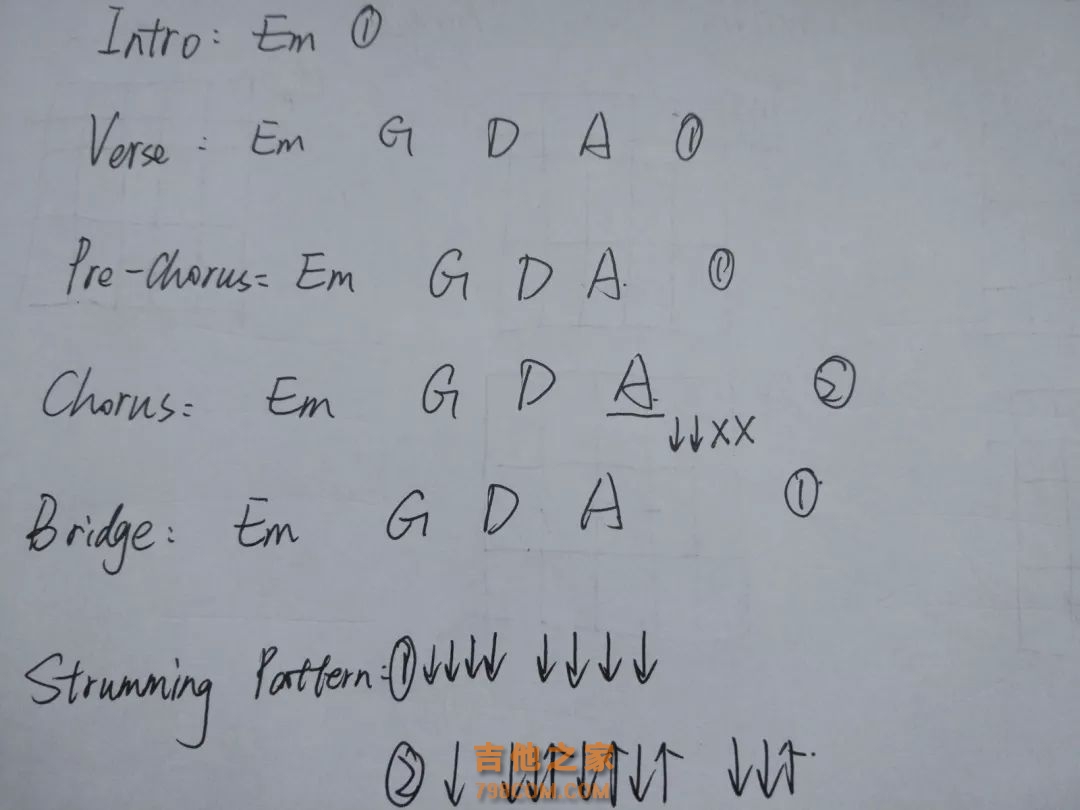 Intro: Em ①
Verse : Em G D A ①
Pre-Chorus: Em G D A ①
Chorus: Em G D A ②
↓↓XX
Bridge: Em G D A ①
Strumming Pattern: ① ↓↓↓↓ ↓↓↓↓
② ↓ ↓↓↑↓↑↓↑ ↓↓↑
吉他之家
798COM.COM